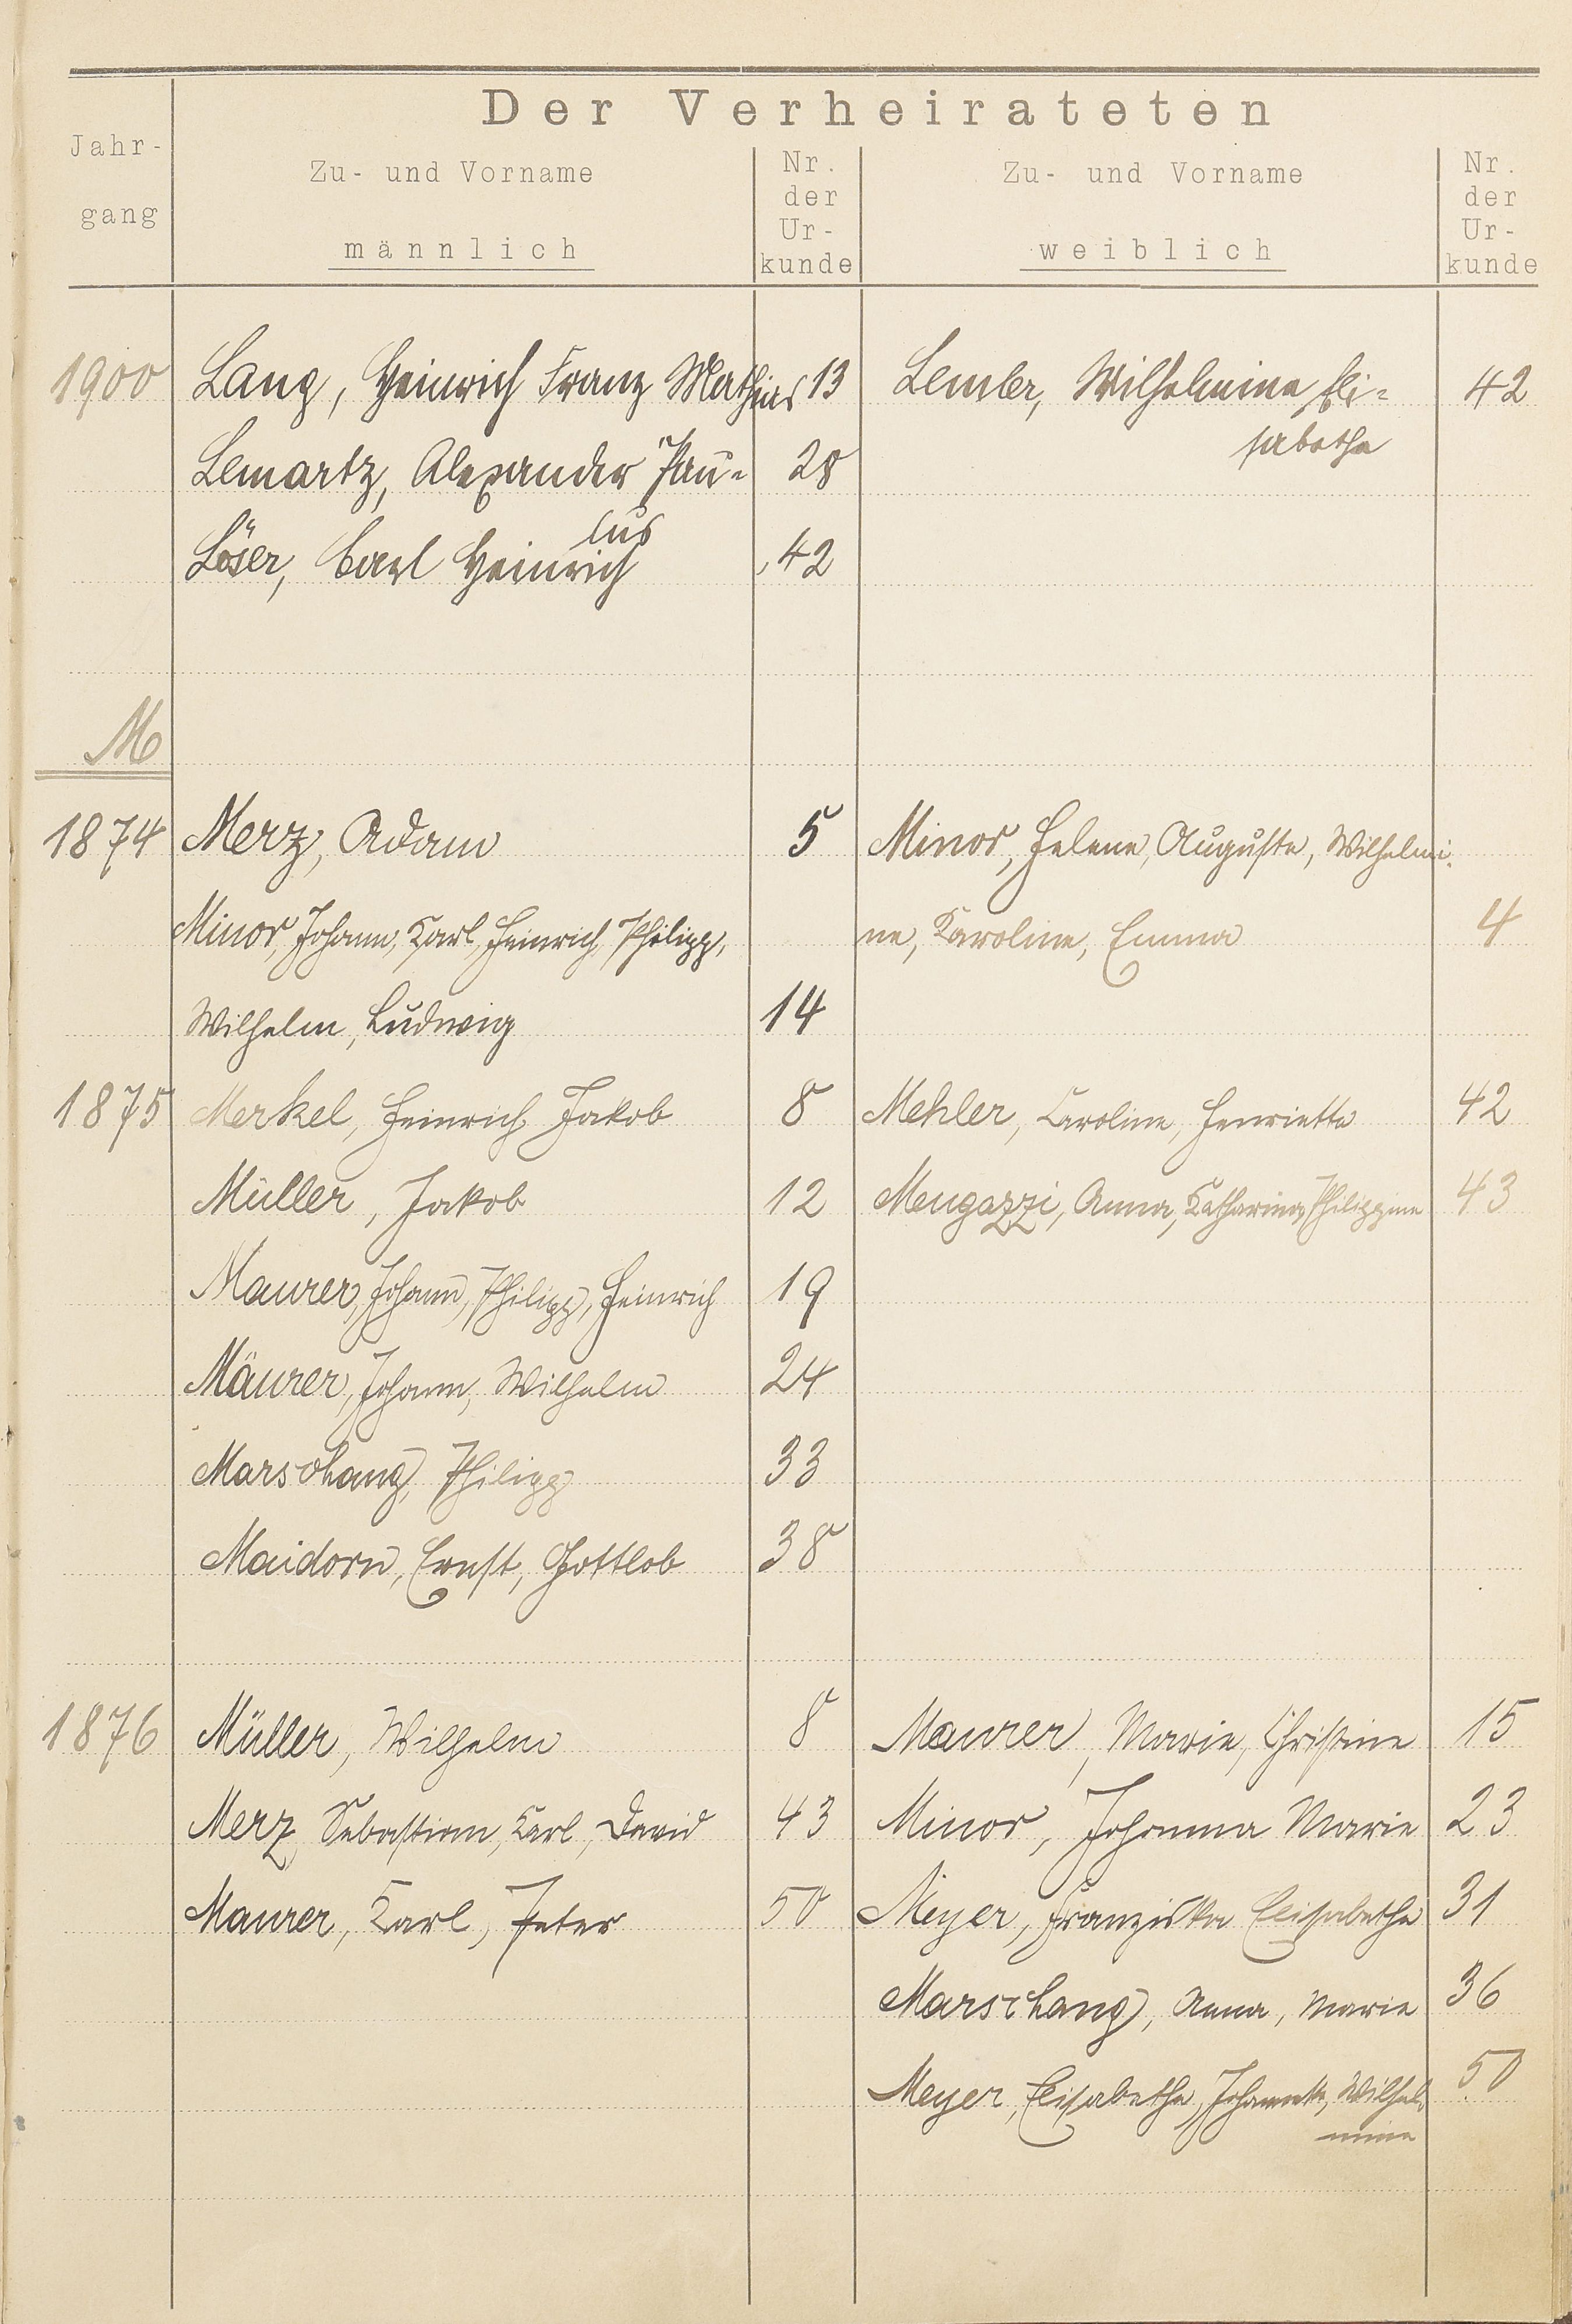 Der Verheirateten
Jahr-
gang
Zu- und Vorname
männlich
Nr.
der
Ur-
kunde
Zu- und Vorname
weiblich
Nr.
der
Ur-
kunde
1900 Lang, Heinrich Franz Mathias 13 Lemler, Wilhelmine Eli=
sabetha 42
Lemartz, Alexander Pau= 28
lus
Löser, Carl Heinrich 42
M
1874 Merz, Adam 5 Minor, Helene, Auguste, Wilhelmi-
Minor, Johann, Karl, Heinrich, Philipp, ne, Karoline, Emma 4
Wilhelm, Ludwig 14
1875 Merkel, Heinrich Jakob 8 Mehler, Caroline, Henriette 42
Müller, Jakob 12 Mengazzi, Anna, Katharina, Philippine 43
Maurer, Johann, Philipp, Heinrich 19
Mäurer, Johann, Wilhelm 24
Marschang, Philipp 33
Maidorn, Ernst, Gottlob 38
1876 Müller, Wilhelm 8 Maurer, Marie, Christine 15
Merz, Sebastian, Karl, David 43 Minor, Johanna Marie 23
Maurer, Karl, Peter 50 Meyer, Franziska Elisabetha 31
Marschang, Anna, Marie 36
Meyer, Elisabetha, Johannette, Wilhel- 50
mine